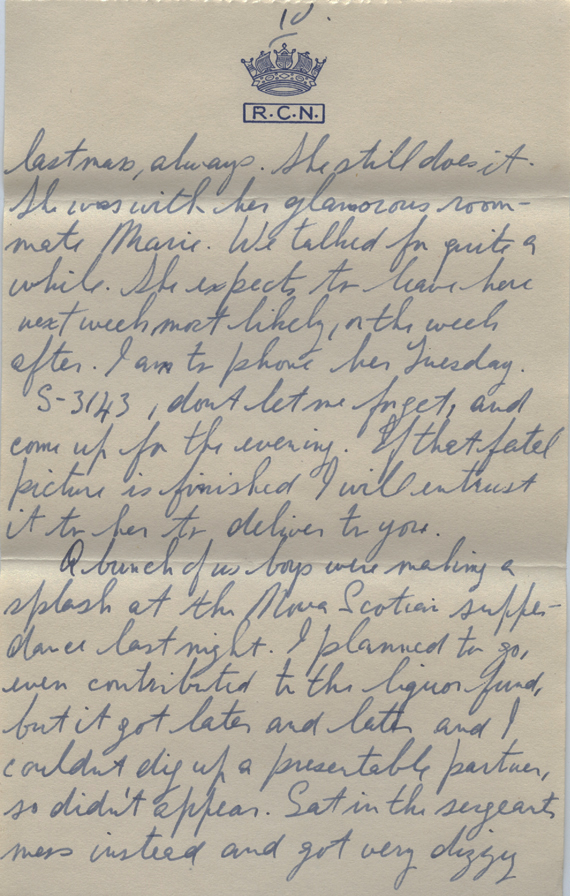 10.
R.C.N.
last mass, always. She still does it.
She was with her glamorous room-
mate Marie. We talked for quite a
while. She expects to leave here
next week most likely, or the week
after. I am to phone her Tuesday.
S-3143, don't let me forget, and
come up for the evening. If that fatal
picture is finished I will entrust
it to her to deliver to you.
A bunch of us boys were making a
splash at the Nova Scotian supper
dance last night. I planned to go,
even contributed to the liquor fund,
but it got later and later and I
couldn't dig up a presentable partner,
so didn't appear. Sat in the sergeants
mess instead and got very dizzy